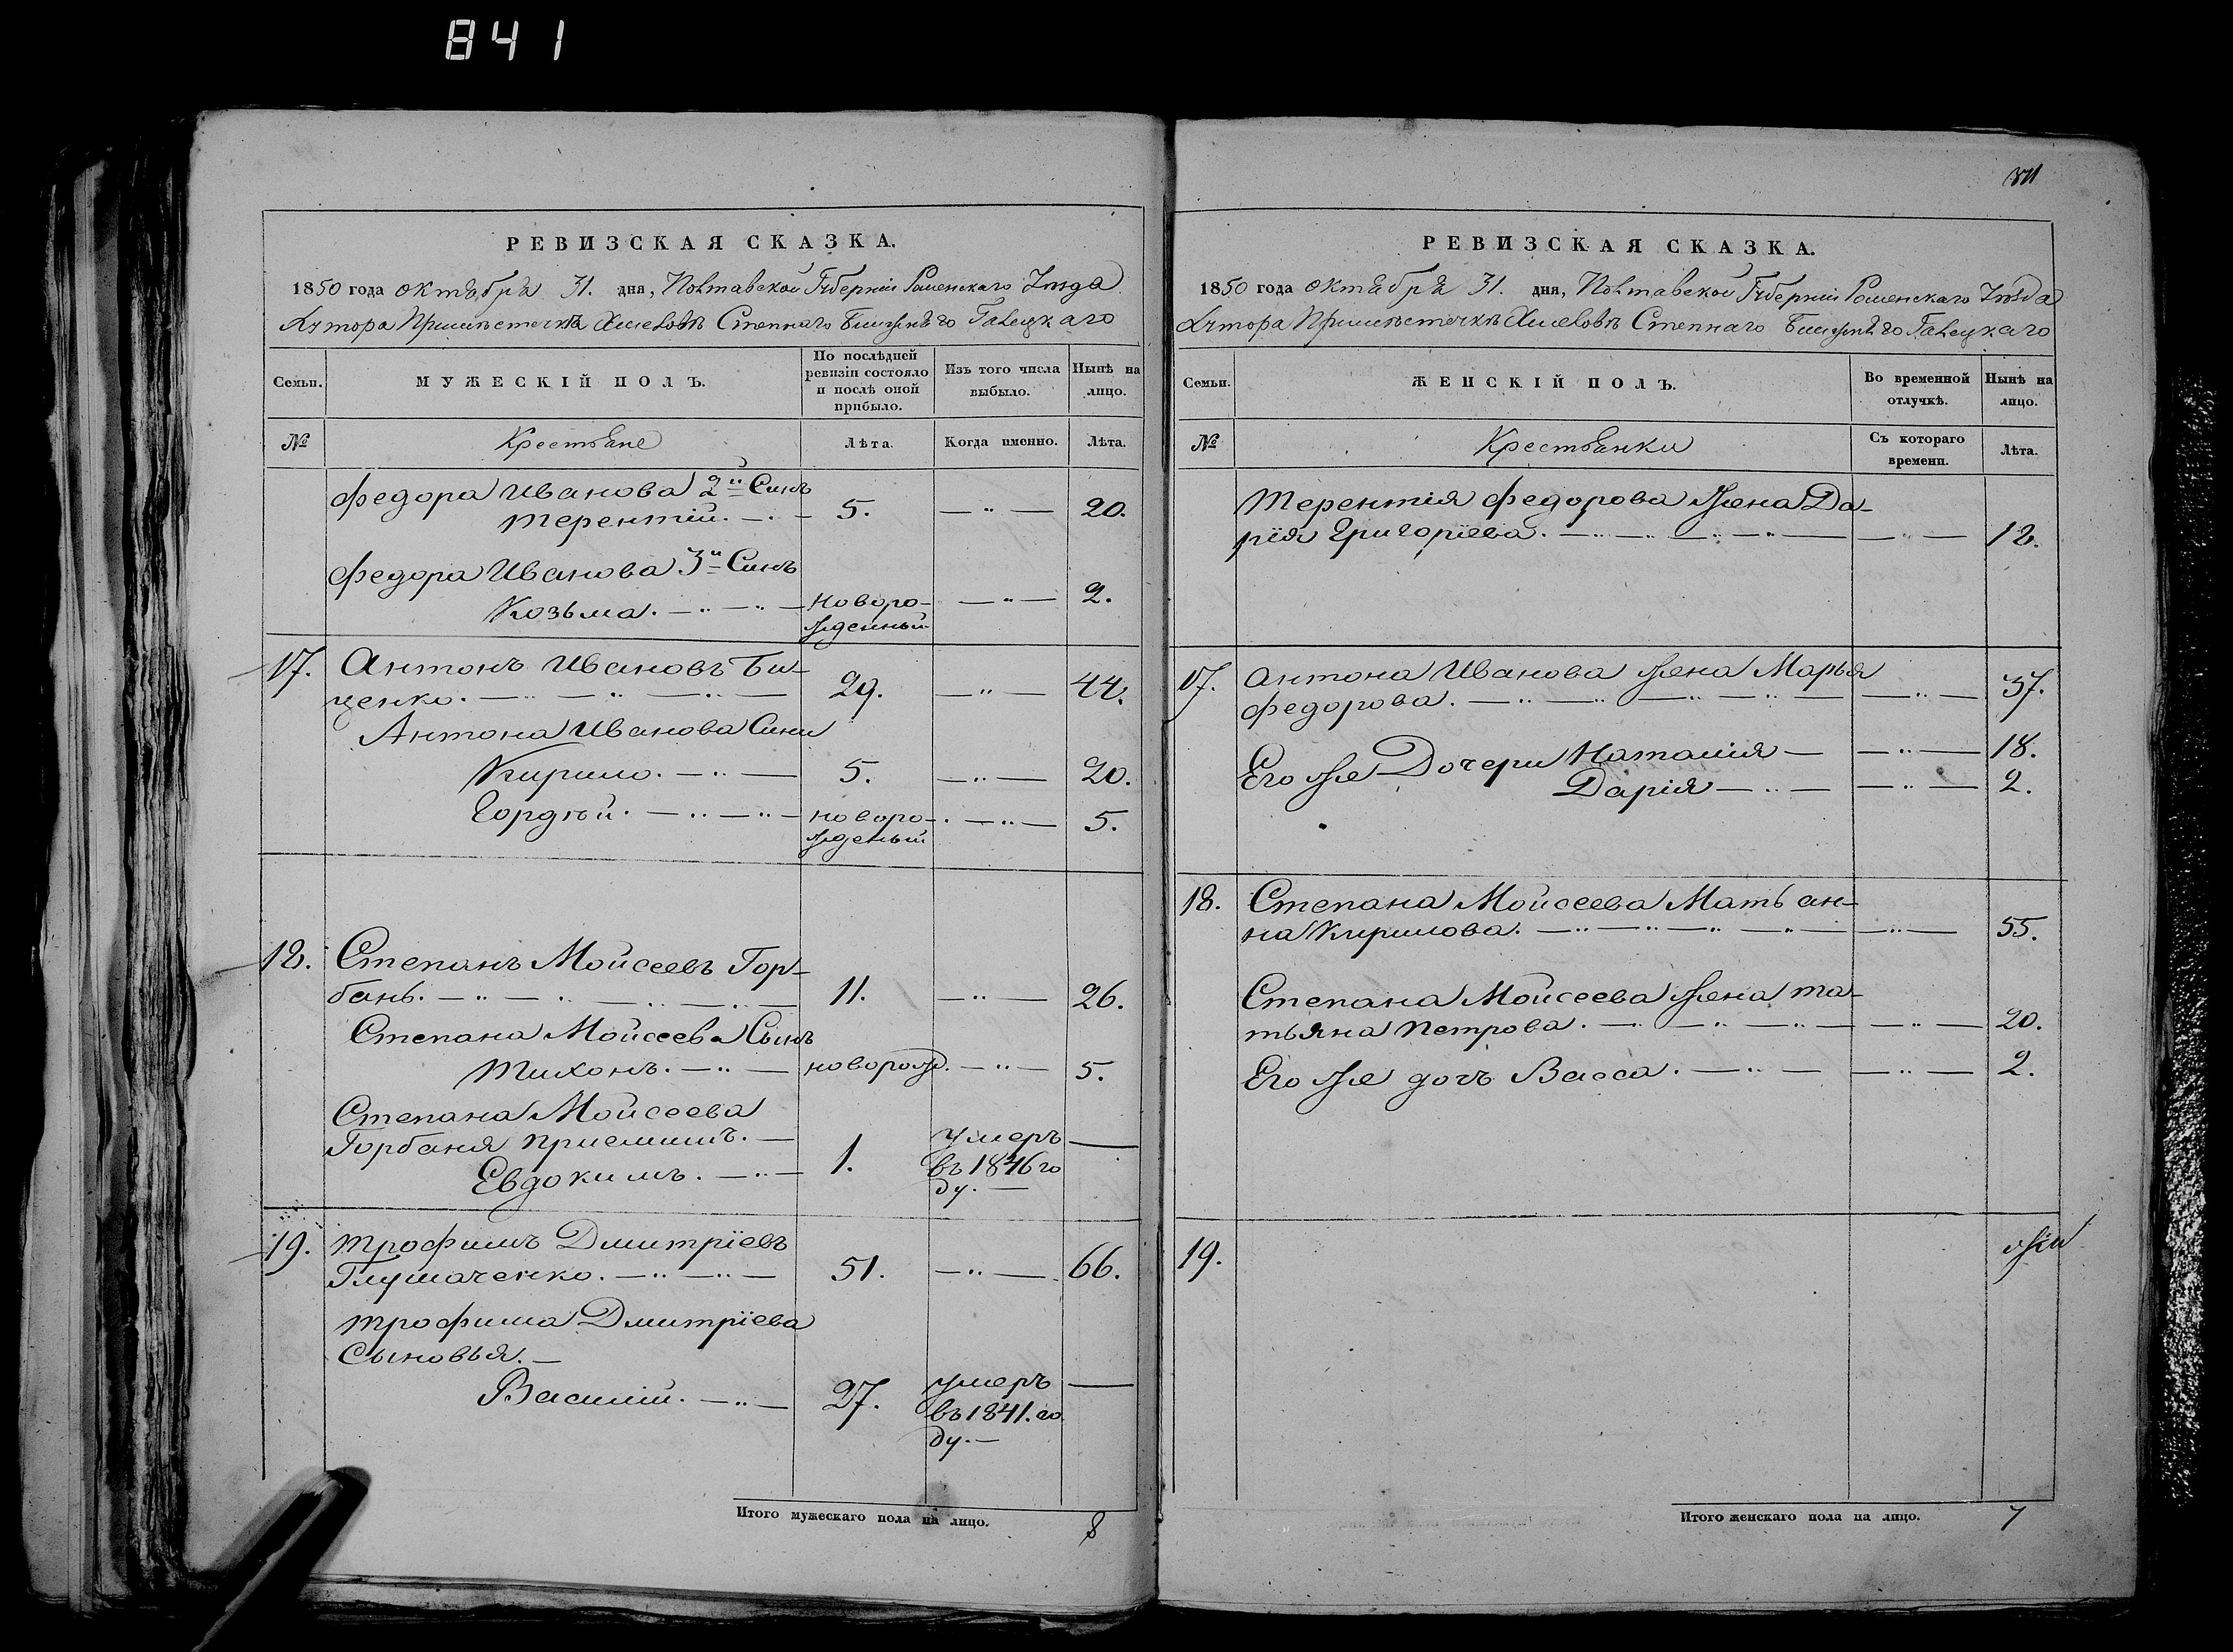 841
РЕВИЗСКАЯ СКАЗКА.
1850 года октября 31. дня, Полтавской Губерніи Роменскаго Уезда
Хутора при местечкѣ Степнаго Галецкаго
Семьи.
МУЖЕСКІЙ ПОЛЪ.
По послѣдней ревизіи состояло и послѣ оной прибыло.
Изъ того числа выбыло.
Нынѣ на лицо.
№
Крестьяне
Лѣта.
Когда именно.
Лѣта.
Федора Иванова 2й Синъ
Терентій. 5. 20.
Федора Иванова 3й Синъ
Козьма. новоро- 2.
жденный
17. Антонъ Ивановъ Би-
ценко. 29. 44.
Антона Иванова Сини
Кирило. 5. 20.
Гордѣй. новоро- 5.
жденый
18. Степанъ Мойсеевъ Гор-
бань. 11. 26.
Степана Мойсеева Сынъ
Тихонъ. новорожд. 5.
Степана Мойсеева
Горбаня приемишъ. умеръ
Евдокимъ. 1. въ 1846 го
ду.
19. Трофимъ Дмитріевъ
Глушаченко. 51. 66.
Трофима Дмитріева
Сыновья.
Василій. 27. умеръ
въ 1841. го
ду.
Итого мужескаго пола на лицо. 8
РЕВИЗСКАЯ СКАЗКА.
1850 года октября 31. дня, Полтавской Губерніи Роменскаго Уезда
Хутора при местечкѣ Степнаго Галецкаго
Семьи.
ЖЕНСКІЙ ПОЛЪ.
Во временной отлучкѣ.
Нынѣ на лицо.
№
Крестьянки
Съ котораго времени.
Лѣта.
Терентія Федорова Жена Да-
рія Григоріева. 18.
17. Антона Иванова Жена Марья
Федорова. 37.
Его же Дочери Наталія 18.
Дарія 2.
18. Степана Мойсеева Мать ан-
на Кирилова. 55.
Степана Мойсеева Жена та-
тьяна Петрова. 20.
Его же дочъ Васса. 2.
19.
Итого женскаго пола на лицо. 7